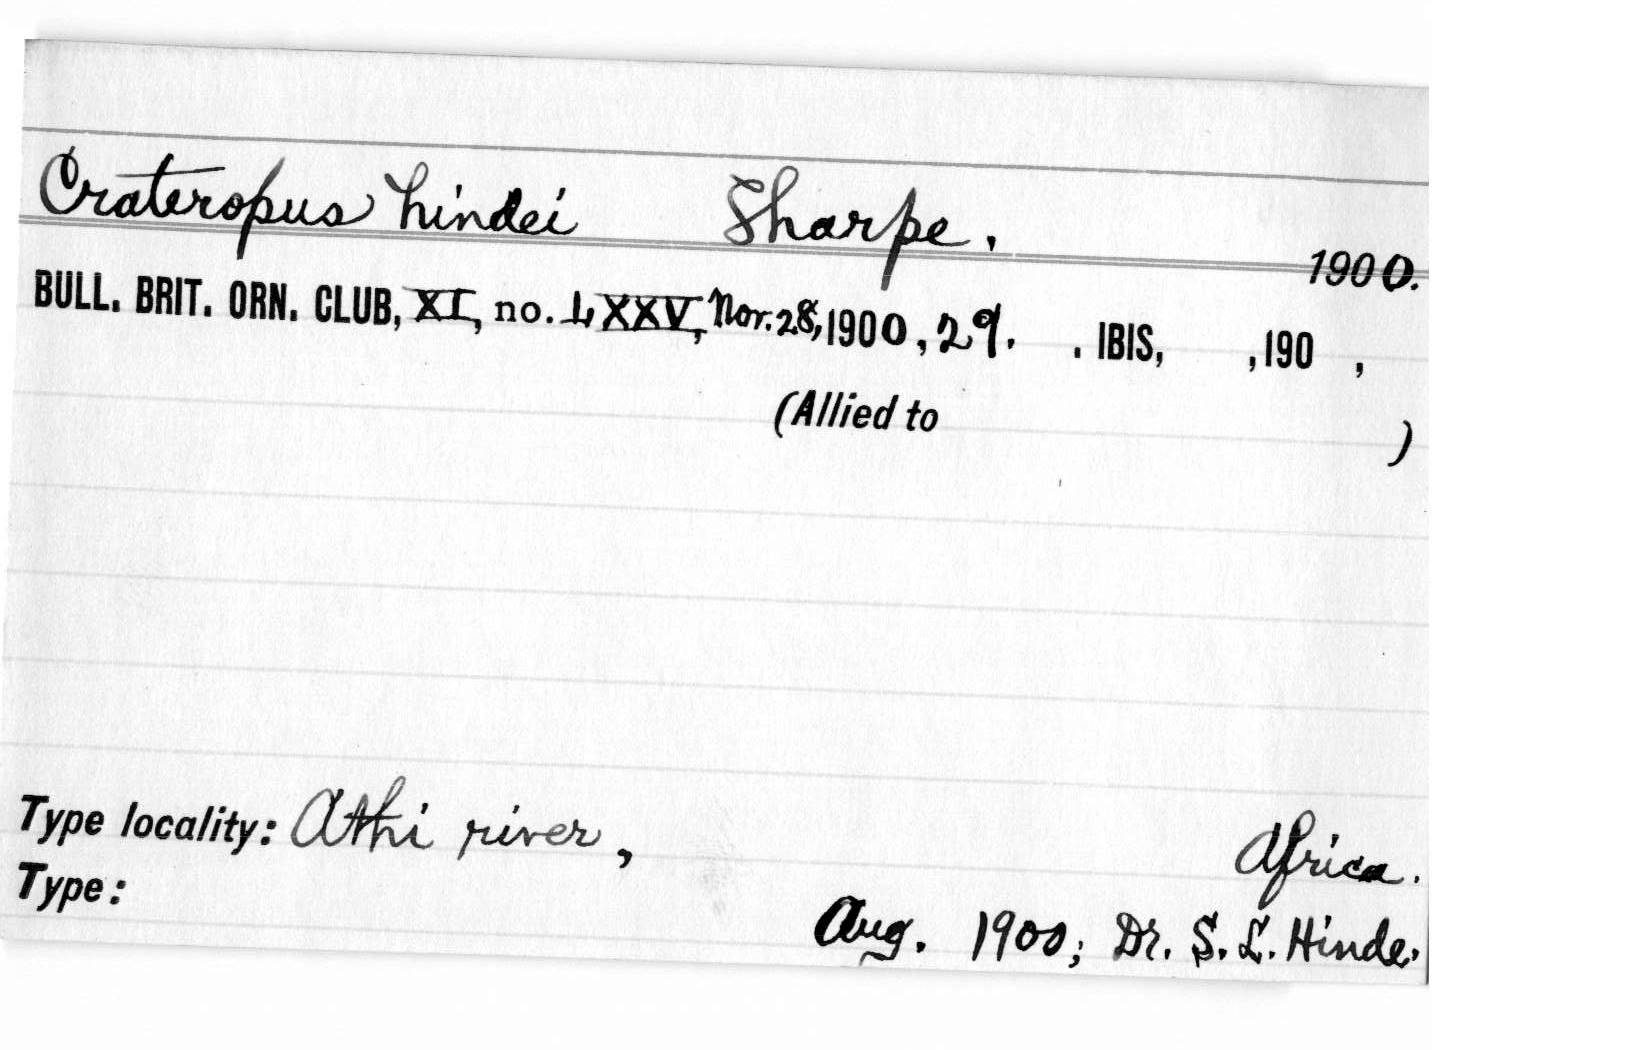 Crateropus hindei Sharpe. 1900.
BULL. BRIT. ORN. CLUB, XI, no. LXXV, Nov. 28, 1900, 29. . IBIS, , 190 ,
(Allied to )
Type locality: Athi river, Africa.
Type:
Aug. 1900; Dr. S. L. Hinde.